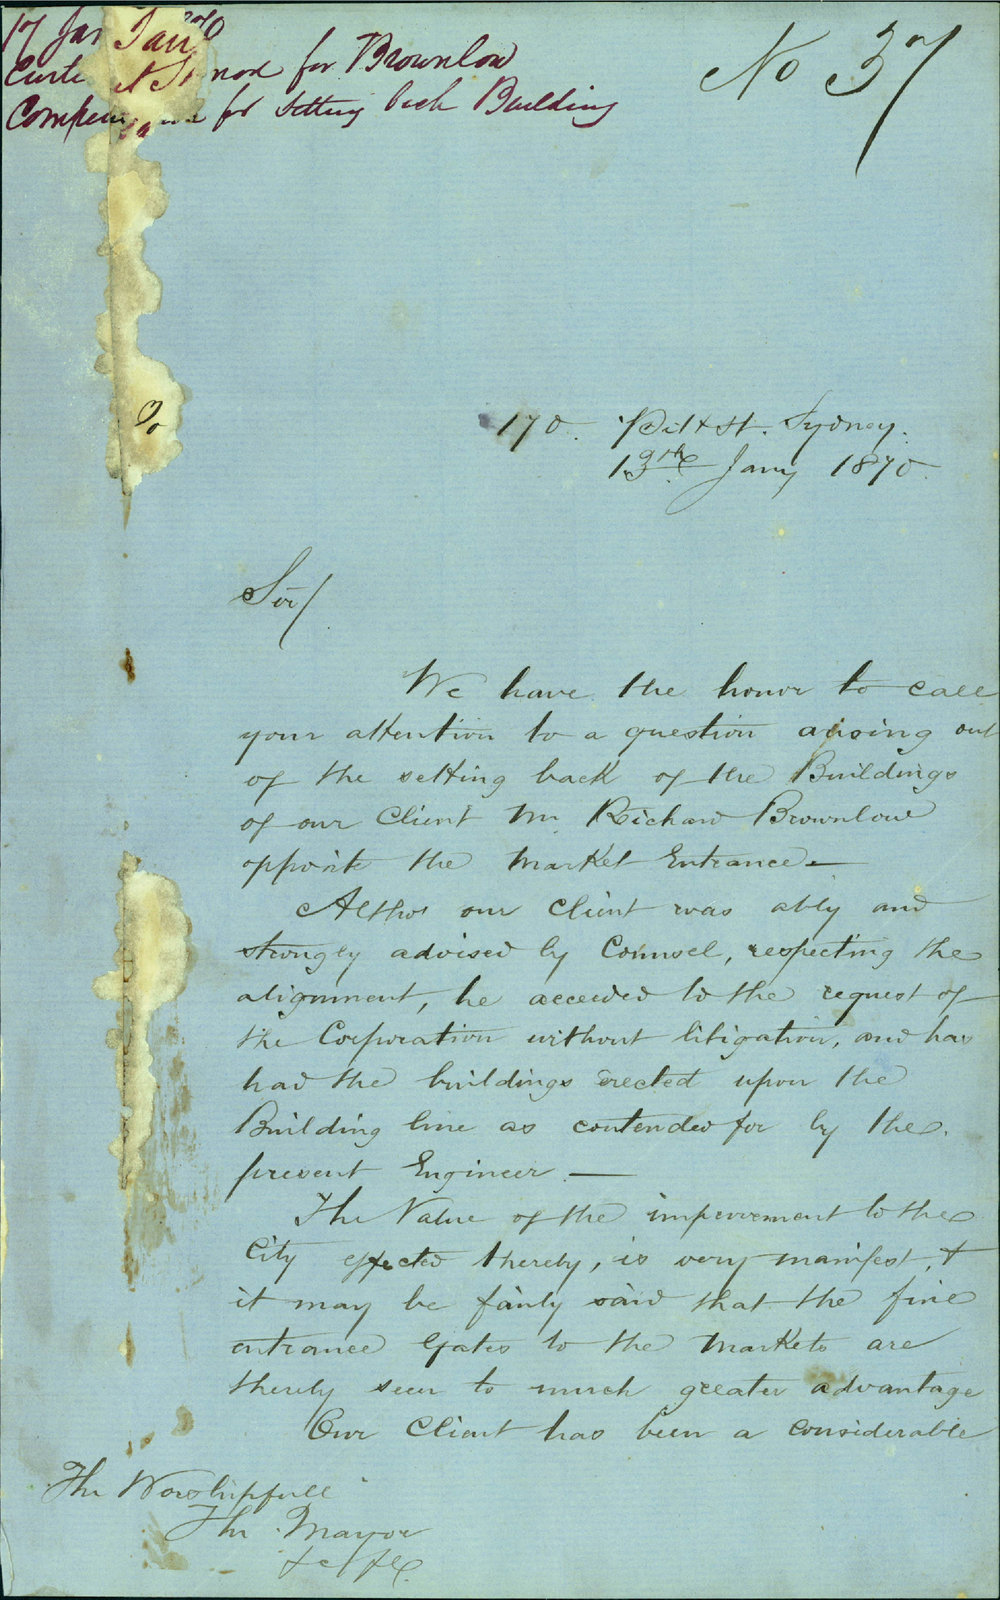 17 Jan 1870
for Brownlow
for setting back Building
No 37
170. Pitt St. Sydney.
13th Jany 1870
Sir/
We have the honor to call
your attention to a question arising out
of the setting back of the Buildings
of our Client Mr Richard Brownlow
opposite the Market Entrance –
Altho' our Client was ably and
strongly advised by Counsel, respecting the
alignment, he acceeded to the request of
the Corporation without litigation, and has
had the buildings erected upon the
Building line as contended for by the
present Engineer. —
The Value of the improvement to the
City effected thereby, is very manifest, &
it may be fairly said that the fine
entrance Gates to the Markets are
thereby seen to much greater advantage
Our Client has been a considerable
The Worshipfull
The Mayor
&c &c